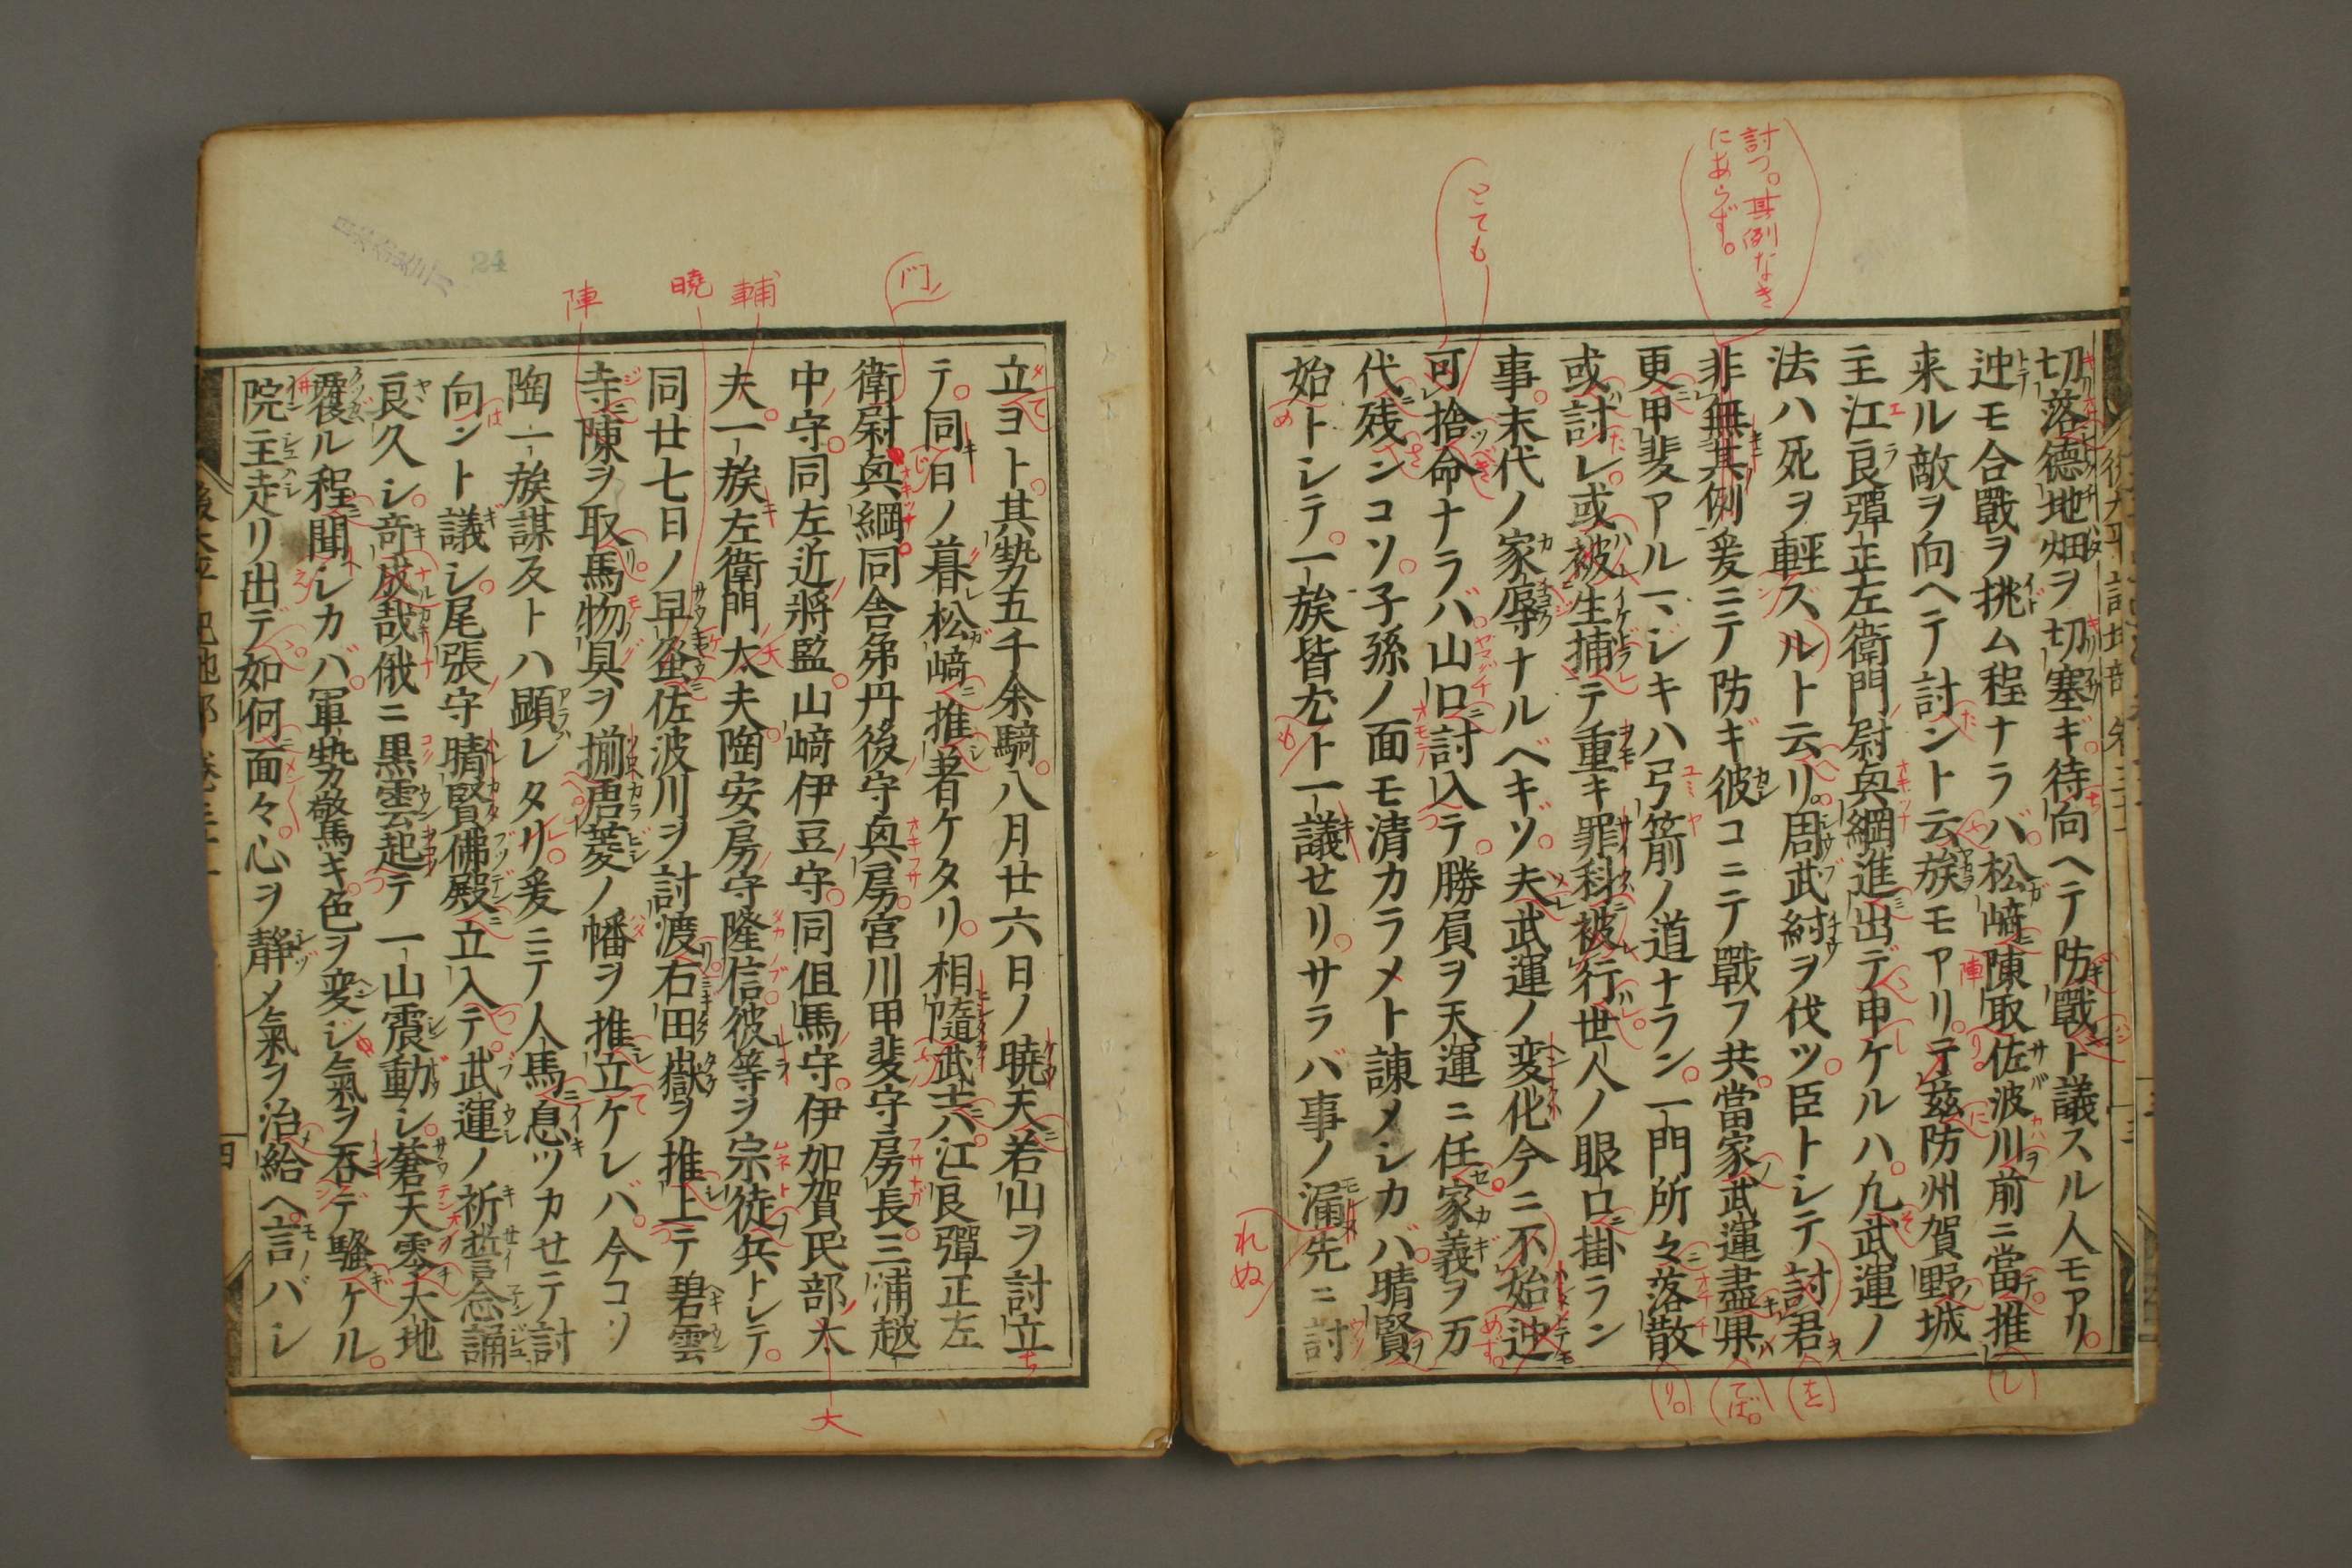 討つ。其例なき
にあらず。
とても
切落德地畑ヲ切塞ギ待向ヘテ防戰ト議スル人モアリ
迚モ合戰ヲ挑ム程ナラバ松﨑陳取佐波川前ニ當推
来ル敵ヲ向ヘテ討ント云族モアリテ茲防州賀野城
主江良彈正左衛門尉奥綱進出デ申ケルハ凢武運ノ
法ハ死ヲ輕ズルト云リ周武紂ヲ伐ツ臣トシテ討君
非無其例爰ニテ防ギ彼コニテ戰フ共當家武運盡果
更甲斐アルマジキハ弓箭ノ道ナラン一門所々落散
或討レ或被生捕テ重キ罪科被行世人ノ眼口掛ラン
事末代ノ家辱ナルベキゾ夫武運ノ変化今ニ不始迚
可捨命ナラバ山口討入テ勝負ヲ天運ニ任家義ヲ万
代残ンコソ子孫ノ面モ清カラメト諌メシカバ晴賢
始トシテ一族皆尤ト一議せリサラバ事ノ漏先ニ討
れぬ
門
輔
曉
陣
24
立ヨト其勢五千余騎八月廿六日ノ曉天若山ヲ討立
テ同日ノ暮松﨑推著ケタリ相隨武士六江良彈正左
衛尉奥綱同舎弟丹後守奥房宮川甲斐守房長三浦越
中守同左近將監山﨑伊豆守同伹馬守伊加賀民部太
夫一族左衛門太夫陶安房守隆信彼等ヲ宗徒兵トシテ
同廿七日ノ早蚤佐波川ヲ討渡右田嶽ヲ推上テ碧雲
寺陳ヲ取馬物具ヲ揃唐菱ノ幡ヲ推立ケレバ今コソ
陶一族謀叛トハ顕レタリ爰ニテ人馬息ツカせテ討
向ント議シ尾張守晴賢佛殿立入テ武運ノ祈誓念誦
良久シ竒成哉俄ニ黒雲起テ一山震動シ蒼天零大地
覆ル程聞シカバ軍勢驚キ色ヲ変ジ氣ヲ呑デ騒ケル
院主走リ出デ如何面々心ヲ静メ氣ヲ治給ヘ言バシ
大
四